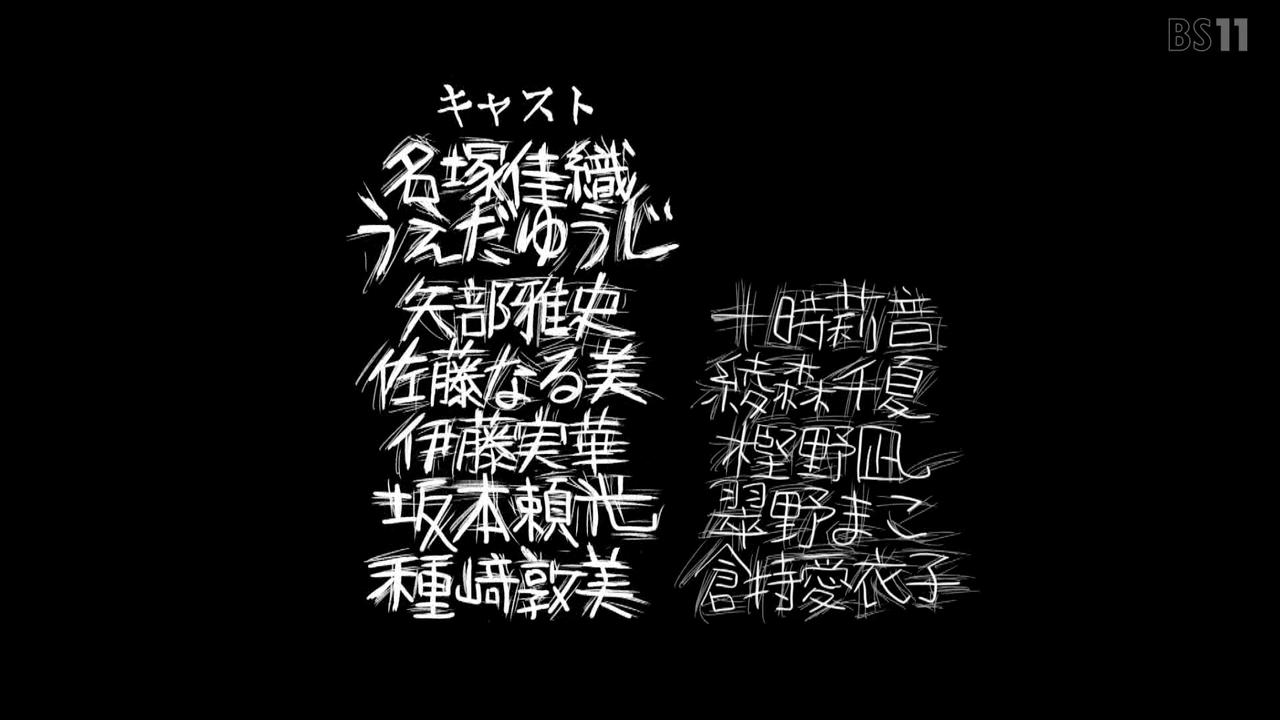 BS11
キャスト
名塚佳織
うえだゆうじ
矢部雅史
佐藤なる美
伊藤実華
坂本頼世
種﨑敦美
十時莉音
綾森千夏
樫野凪
翠野まこ
倉持愛衣子